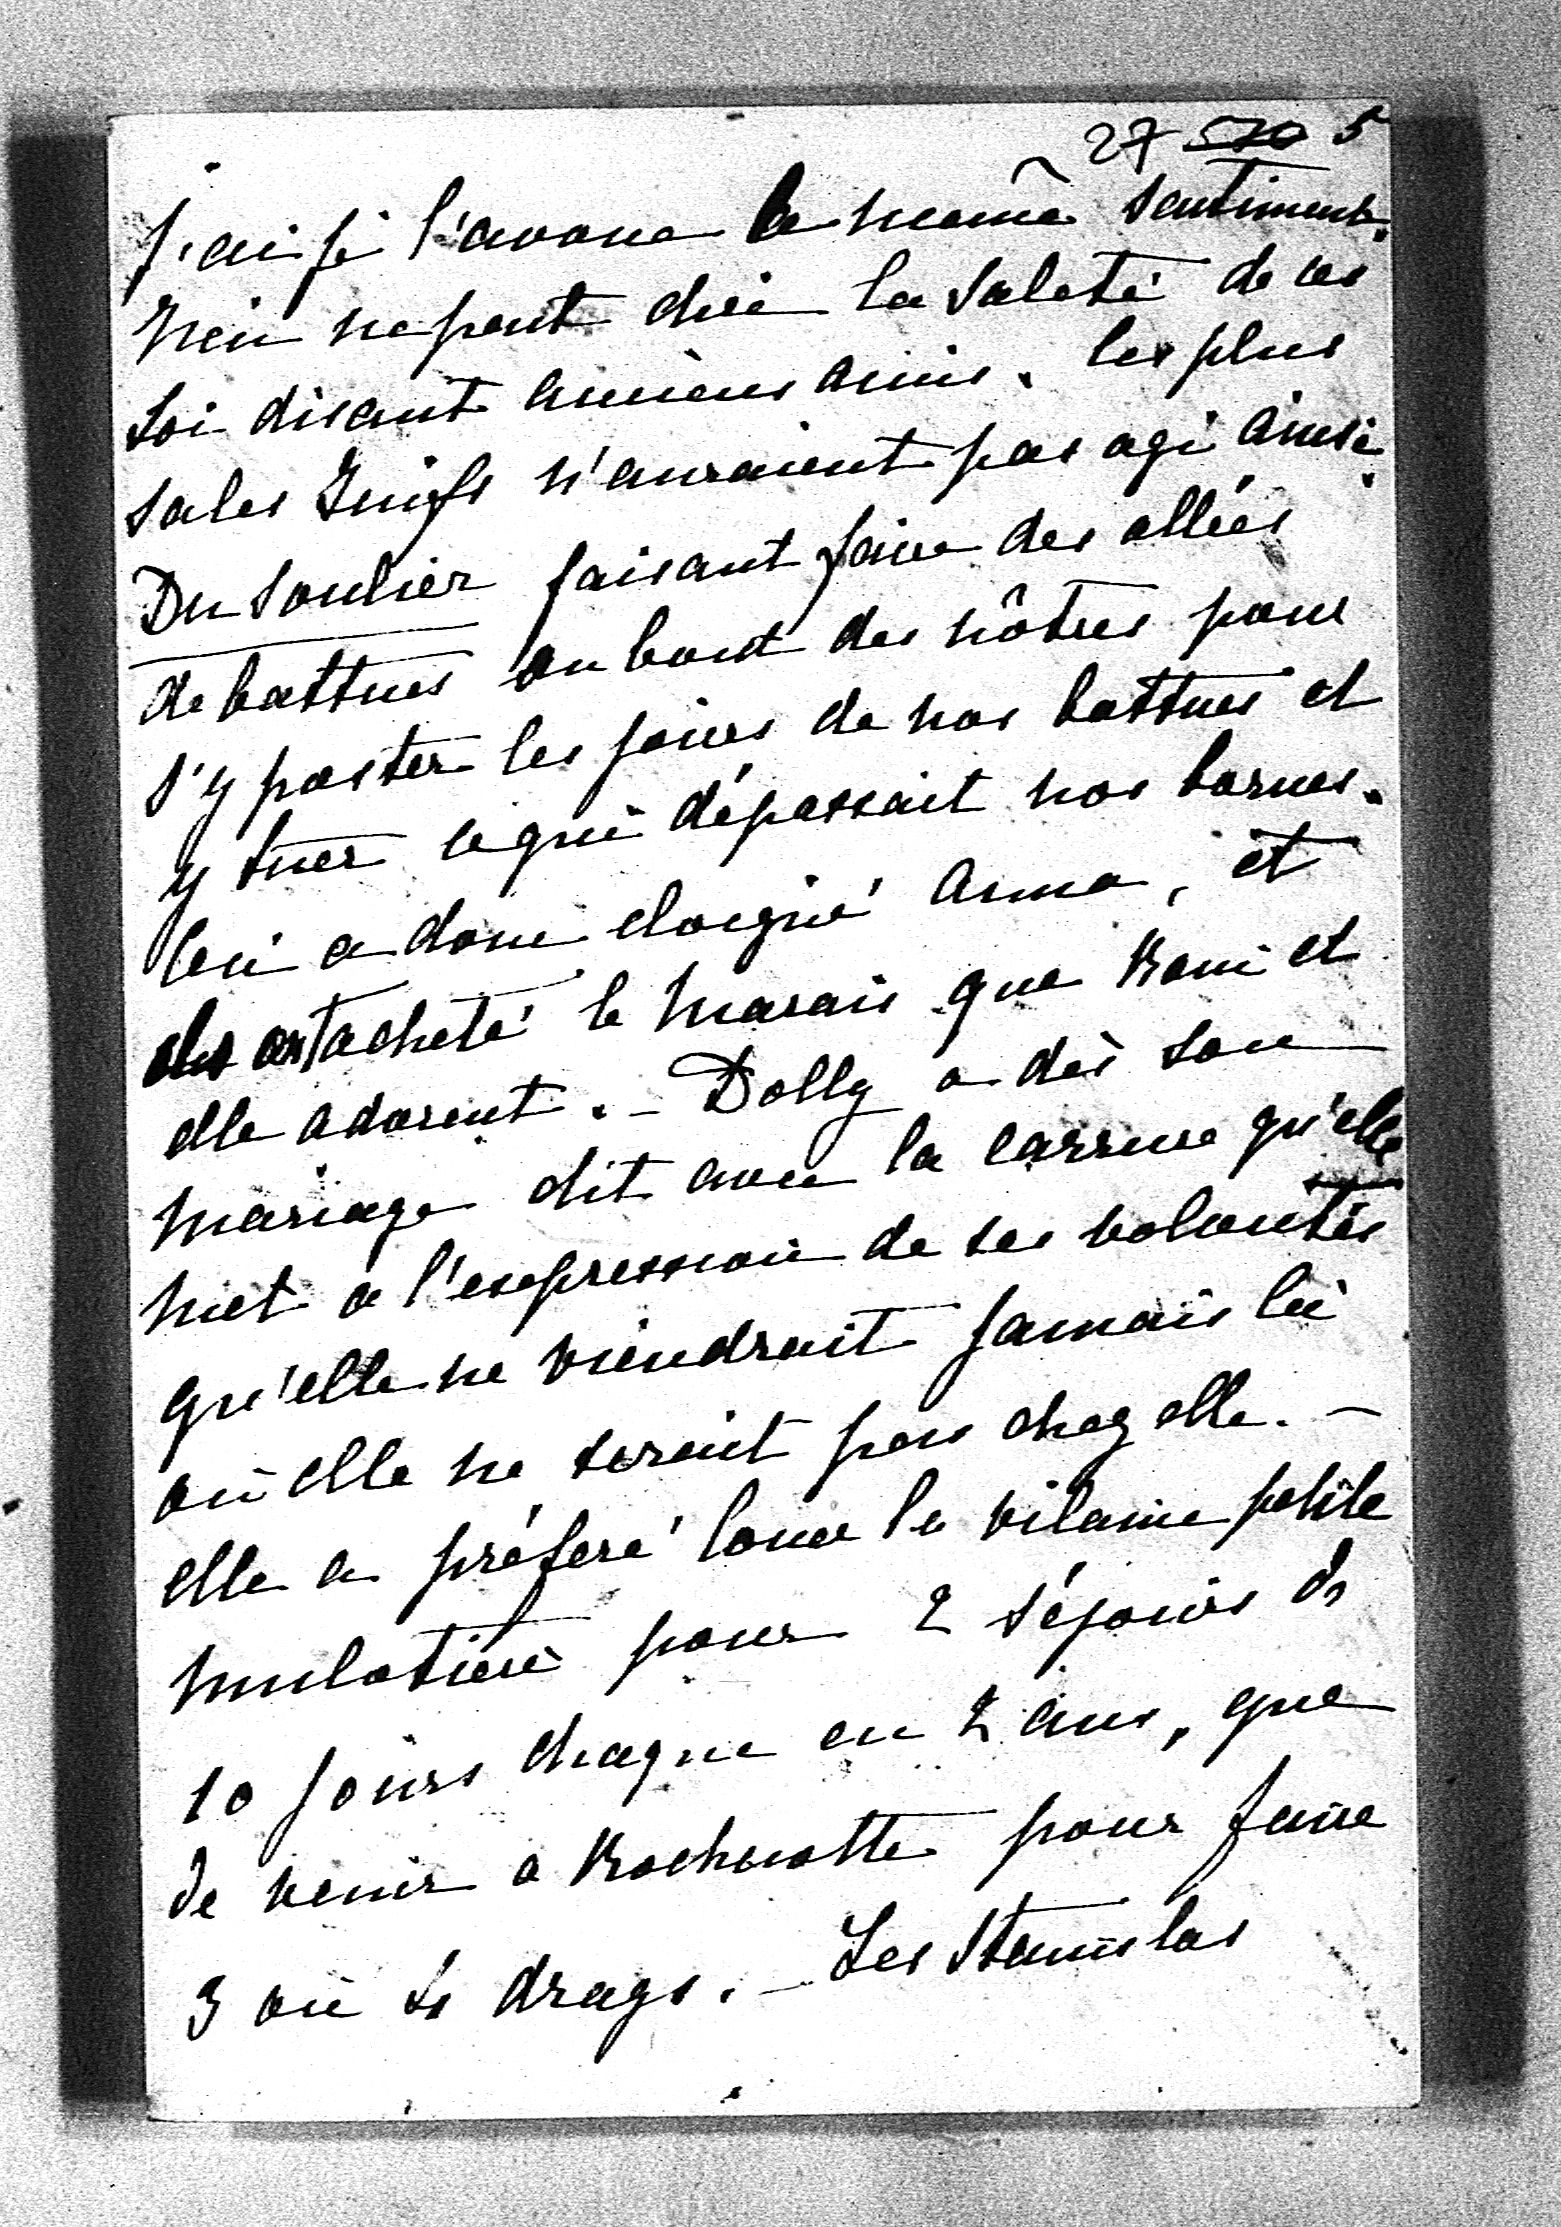 27 570 5
J'ai je l'avoue le même sentiment.
rien ne peut dire la saleté de ces
soi disant anciens amis. les plus
sales Juifs n'auraient pas agi ainsi.
Du Soulier faisant faire des allées
de battues au bout des nôtres pour
s'y poster les jours de nos battues et
y tuer ce qui dépassait nos bornes.
Ceci a donc eloigné Anna, et
ont acheté le Marais que Boni et
elle adorent. - Dolly a dès son
mariage dit avec la carrure qu'elle
met a l'expression de ses volontés
qu'elle ne viendrait jamais là
où elle ne serait pas chez elle. -
elle a préféré louer la vilaine petite
mulotière pour 2 séjours de
10 jours chaque en 2 ans, que
de venir a Rochecotte pour faire
3 ou drags. - Les Stanislas